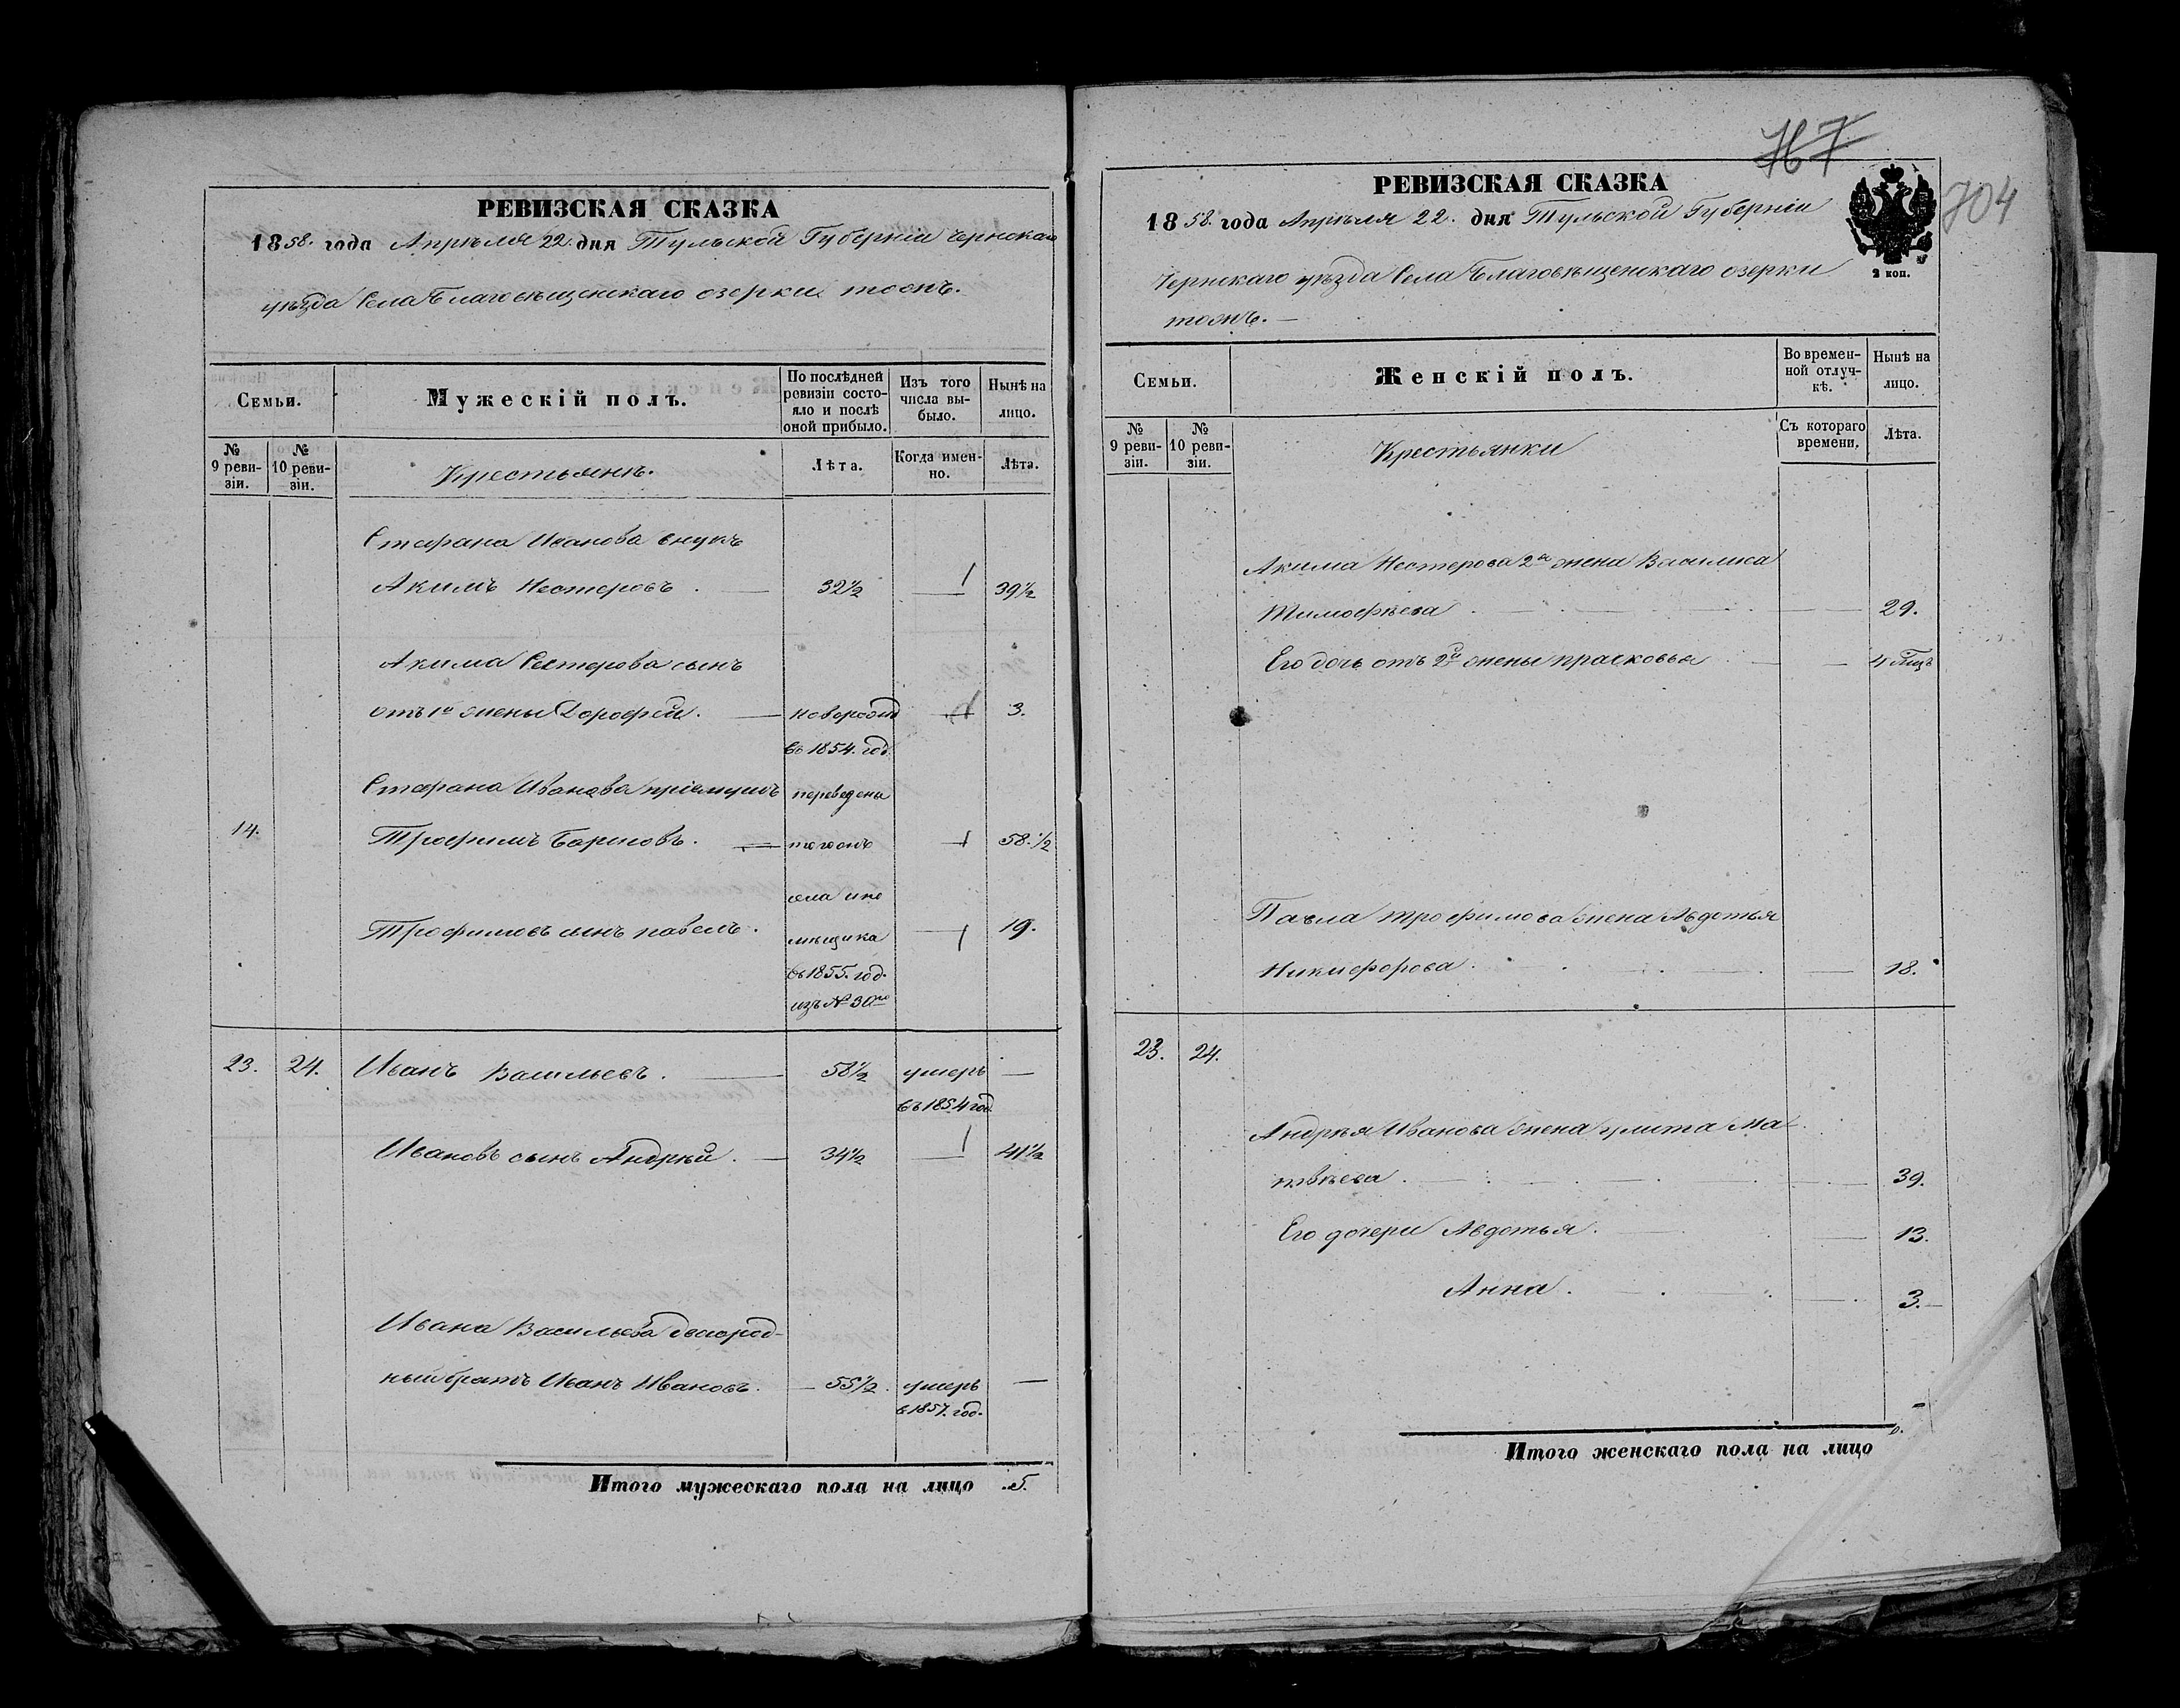 РЕВИЗСКАЯ СКАЗКА
1858. года Апрѣля 22. дня Тульской Губерніи Чернскаго
уѣзда Села Благовѣщенскаго озерки тожъ.
Семьи.
Мужескій полъ.
По послѣдней ревизіи состояло и послѣ оной прибыло.
Изъ того числа выбыло.
Нынѣ на лицо.
№ 9 ревизіи.
№ 10 ревизіи.
Крестьянъ.
Лѣта.
Когда именно.
Лѣта.
Стефана Иванова внукъ
Акимъ Нестеровъ . 32½ 39½
Акима Нестерова сынъ
отъ 1й жены Дорофей. новорожд 3.
въ 1854. год.
Стефана Иванова пріемышъ переведены
14. Трофимъ . тогожъ 58.½
села
Трофимовъ сынъ павелъ. 19.
въ 1855. год.
изъ № 30го
23. 24. Иванъ Васильевъ. 58½ умеръ —
въ 1854 год.
Ивановъ сынъ Андрѣй. 34½ 41½
Ивана Васильева двоюрод-
ный братъ Иванъ Ивановъ. 55½. умеръ —
в 1857. год.
Итого мужескаго пола на лицо 5.
767
704
РЕВИЗСКАЯ СКАЗКА
1858. года Апрѣля 22. дня Тульской Губерніи
Чернскаго уѣзда Села Благовѣщенскаго озерки
тожъ. —
2 коп.
Семьи.
Женскій полъ.
Во временной отлучкѣ.
Нынѣ на лицо.
№ 9 ревизіи.
№ 10 ревизіи.
Крестьянки
Съ котораго времени.
Лѣта.
Акима Нестерова 2я жена Василиса
Тимофѣева . 29.
Его дочь отъ 2й жены прасковья 4
Павла трофимова жена Авдотья
Никифорова. 18.
23. 24.
Андрѣя Иванова жена улита Ма-
твѣева . 39.
Его дочери Авдотья. 13.
Анна . 3.
Итого женскаго пола на лицо